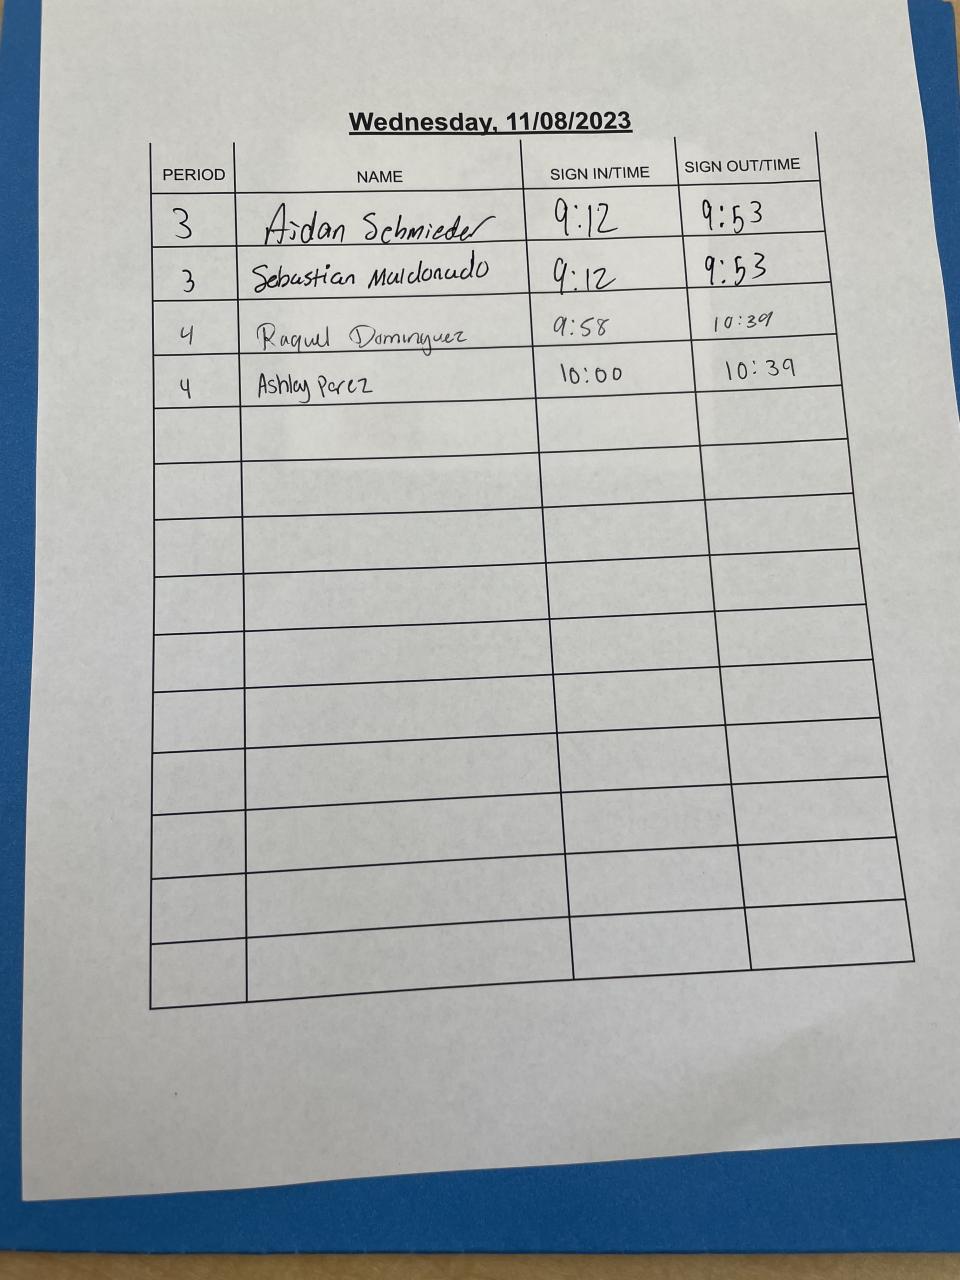 Wednesday, 11/08/2023
PERIOD NAME SIGN IN/TIME SIGN OUT/TIME
3 Aidan Schmieder 9:12 9:53
3 Sebastian Maldonado 9:12 9:53
4 Raquel Dominguez 9:58 10:39
4 Ashley Perez 10:00 10:39